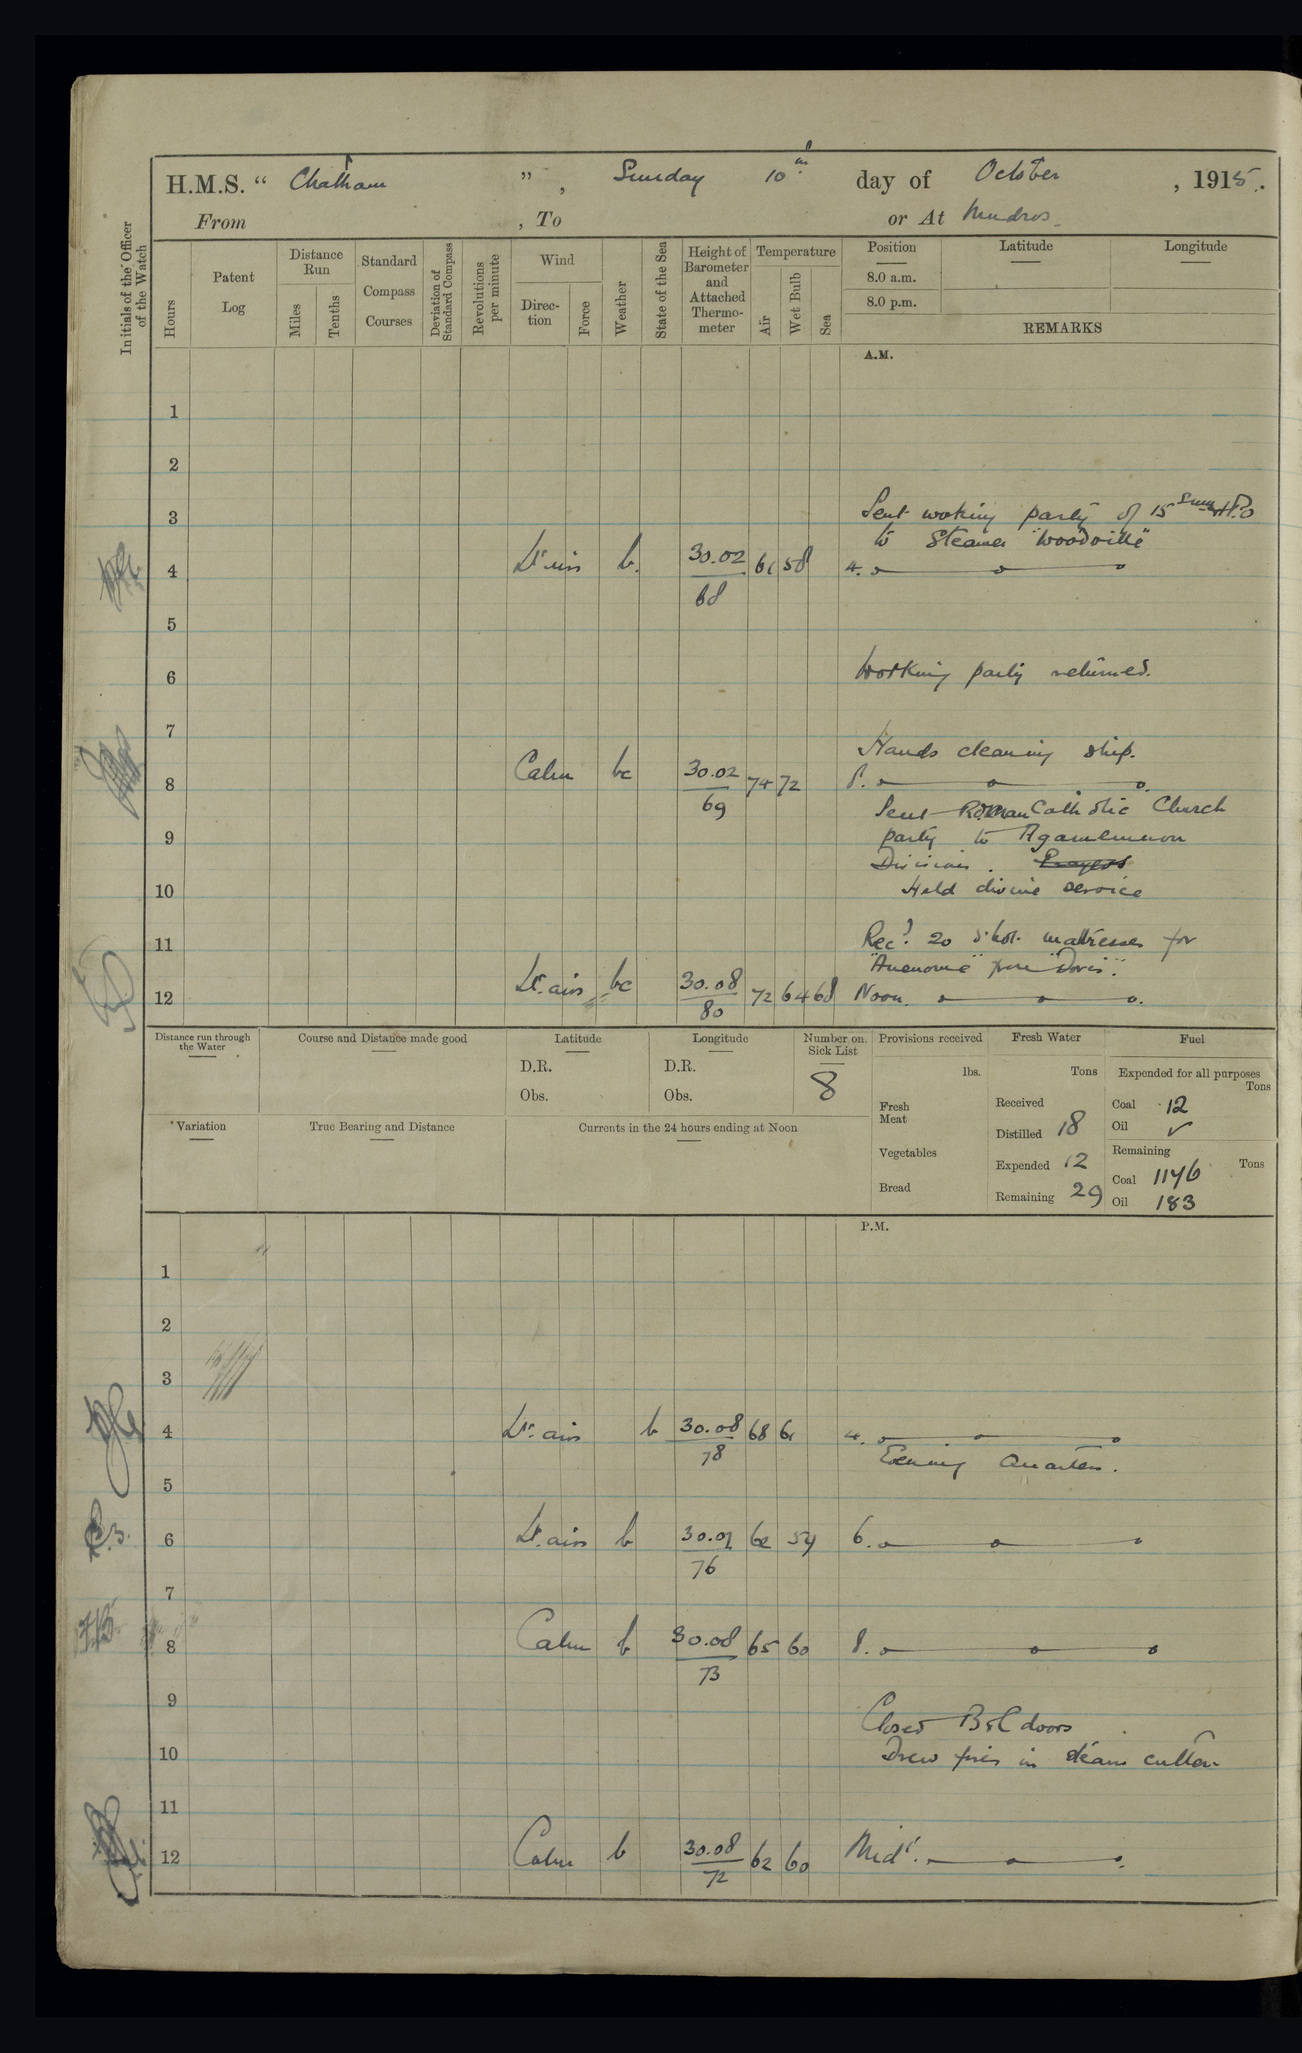 H.M.S. “ Chatham ” , Sunday 10th day of October , 1915.
From , To or At Mudros.
Initials of the Officer of the Watch
Hours
Patent Log
Distance Run
Miles
Tenths
Standard Compass Courses
Deviation of Standard Compass
Revolutions per minute
Wind
Direction
Force
Weather
State of the Sea
Height of Barometer and Attached Thermometer
Temperature
Air
Wet Bulb
Sea
Position Latitude Longitude
8.0 a.m.
8.0 p.m.
REMARKS
A.M.
1
2
3 Sent working party of 15
to Steamer "Woodville"
4 Lt airs b. 30.02 61 58 4.
68
5
6 Working party returned.
7
Hands cleaning ship.
8 Calm bc 30.02 74 72 8.
69
Sent Roman Catholic Church
9 party to Agamemnon
Divisions. Prayers
10 Held divine service
11 Recd. 20 mattresses for
"Anemone" from "Doris".
12 Lt. airs bc 30.08 72 64 68 Noon.
80
Distance run through the Water
Course and Distance made good
Latitude
D.R.
Obs.
Longitude
D.R.
Obs.
Number on Sick List
8
Provisions received
lbs.
Fresh Meat
Vegetables
Bread
Fresh Water
Tons
Received
Distilled 18
Expended 12
Remaining 29
Fuel
Expended for all purposes
Tons
Coal 12
Oil ✓
Remaining
Tons
Coal 1146
Oil 183
Variation
True Bearing and Distance
Currents in the 24 hours ending at Noon
P.M.
1
2
3
4 Lt. airs b 30.08 68 61 4.
78
Evening Quarters.
5
6 Lt. airs b 62 59 6.
76
7
8 Calm b 30.08 65 60 8.
73
9
Closed B&C doors
10 Drew fires in steam cutter
11
12 Calm b 30.08 62 60 Midt.
72